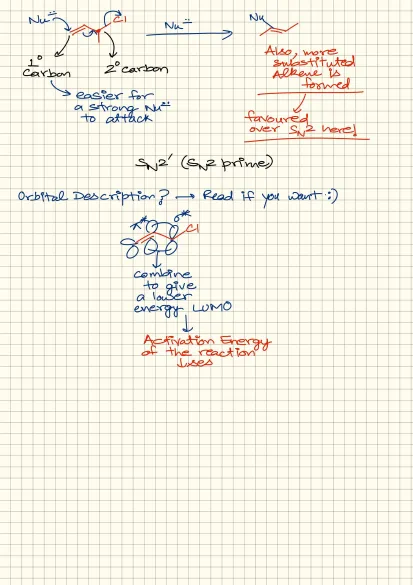 Nu⁻ Cl Nu⁻ Nu
1° Carbon 2° carbon
→ easier for
a strong Nu⁻
to attack
Also, more
substituted
Alkene is
formed
favoured
over SN2 here!
SN2' (SN2 prime)
Orbital Description? → Read if you want :)
π* σ* Cl
combine
to give
a lower
energy LUMO
Activation Energy
of the reaction